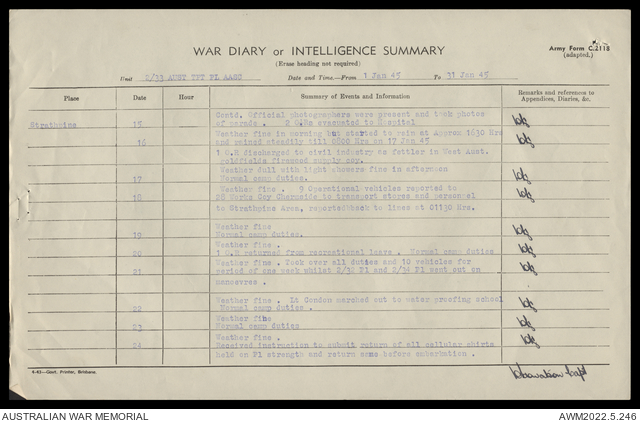 Army Form C.2118
(adapted.)
WAR DIARY or INTELLIGENCE SUMMARY
(Erase heading not required)
Unit 2/33 AUST TPT PL AASC Date and Time.—From 1 Jan 45 To 31 Jan 45
Place Date Hour Summary of Events and Information Remarks and references to Appendices, Diaries, &c.
Contd. Official photographers were present and took photos
Strathpine 15 of parade . 2 ORs evacuated to Hospital
Weather fine in morning but started to rain at Approx 1630 Hrs
16 and rained steadily till 0800 Hrs on 17 Jan 45
1 O.R discharged to civil industry as fettler in West Aust.
goldfields firewood supply coy.
Weather dull with light showers fine in afternoon
17 Normal camp duties.
Weather fine . 9 Operational vehicles reported to
18 Works Coy Chermside to transport stores and personnel
to Strathpine Area, reported back to lines at 01130 Hrs.
Weather fine
19 Normal camp duties.
Weather fine .
20 1 O.R returned from recreational leave . Normal camp duties
Weather fine . Took over all duties and 10 vehicles for
21 period of one week whilst 2/32 Pl and 2/34 Pl went out on
manoevres .
Weather fine . Lt Condon marched out to water proofing school
22 Normal camp duties .
Weather fine
23 Normal camp duties
Weather fine .
24 Received instruction to submit return of all cellular shirts
held on Pl strength and return same before embarkation .
4-43—Govt. Printer, Brisbane.
Capt
AUSTRALIAN WAR MEMORIAL AWM2022.5.246